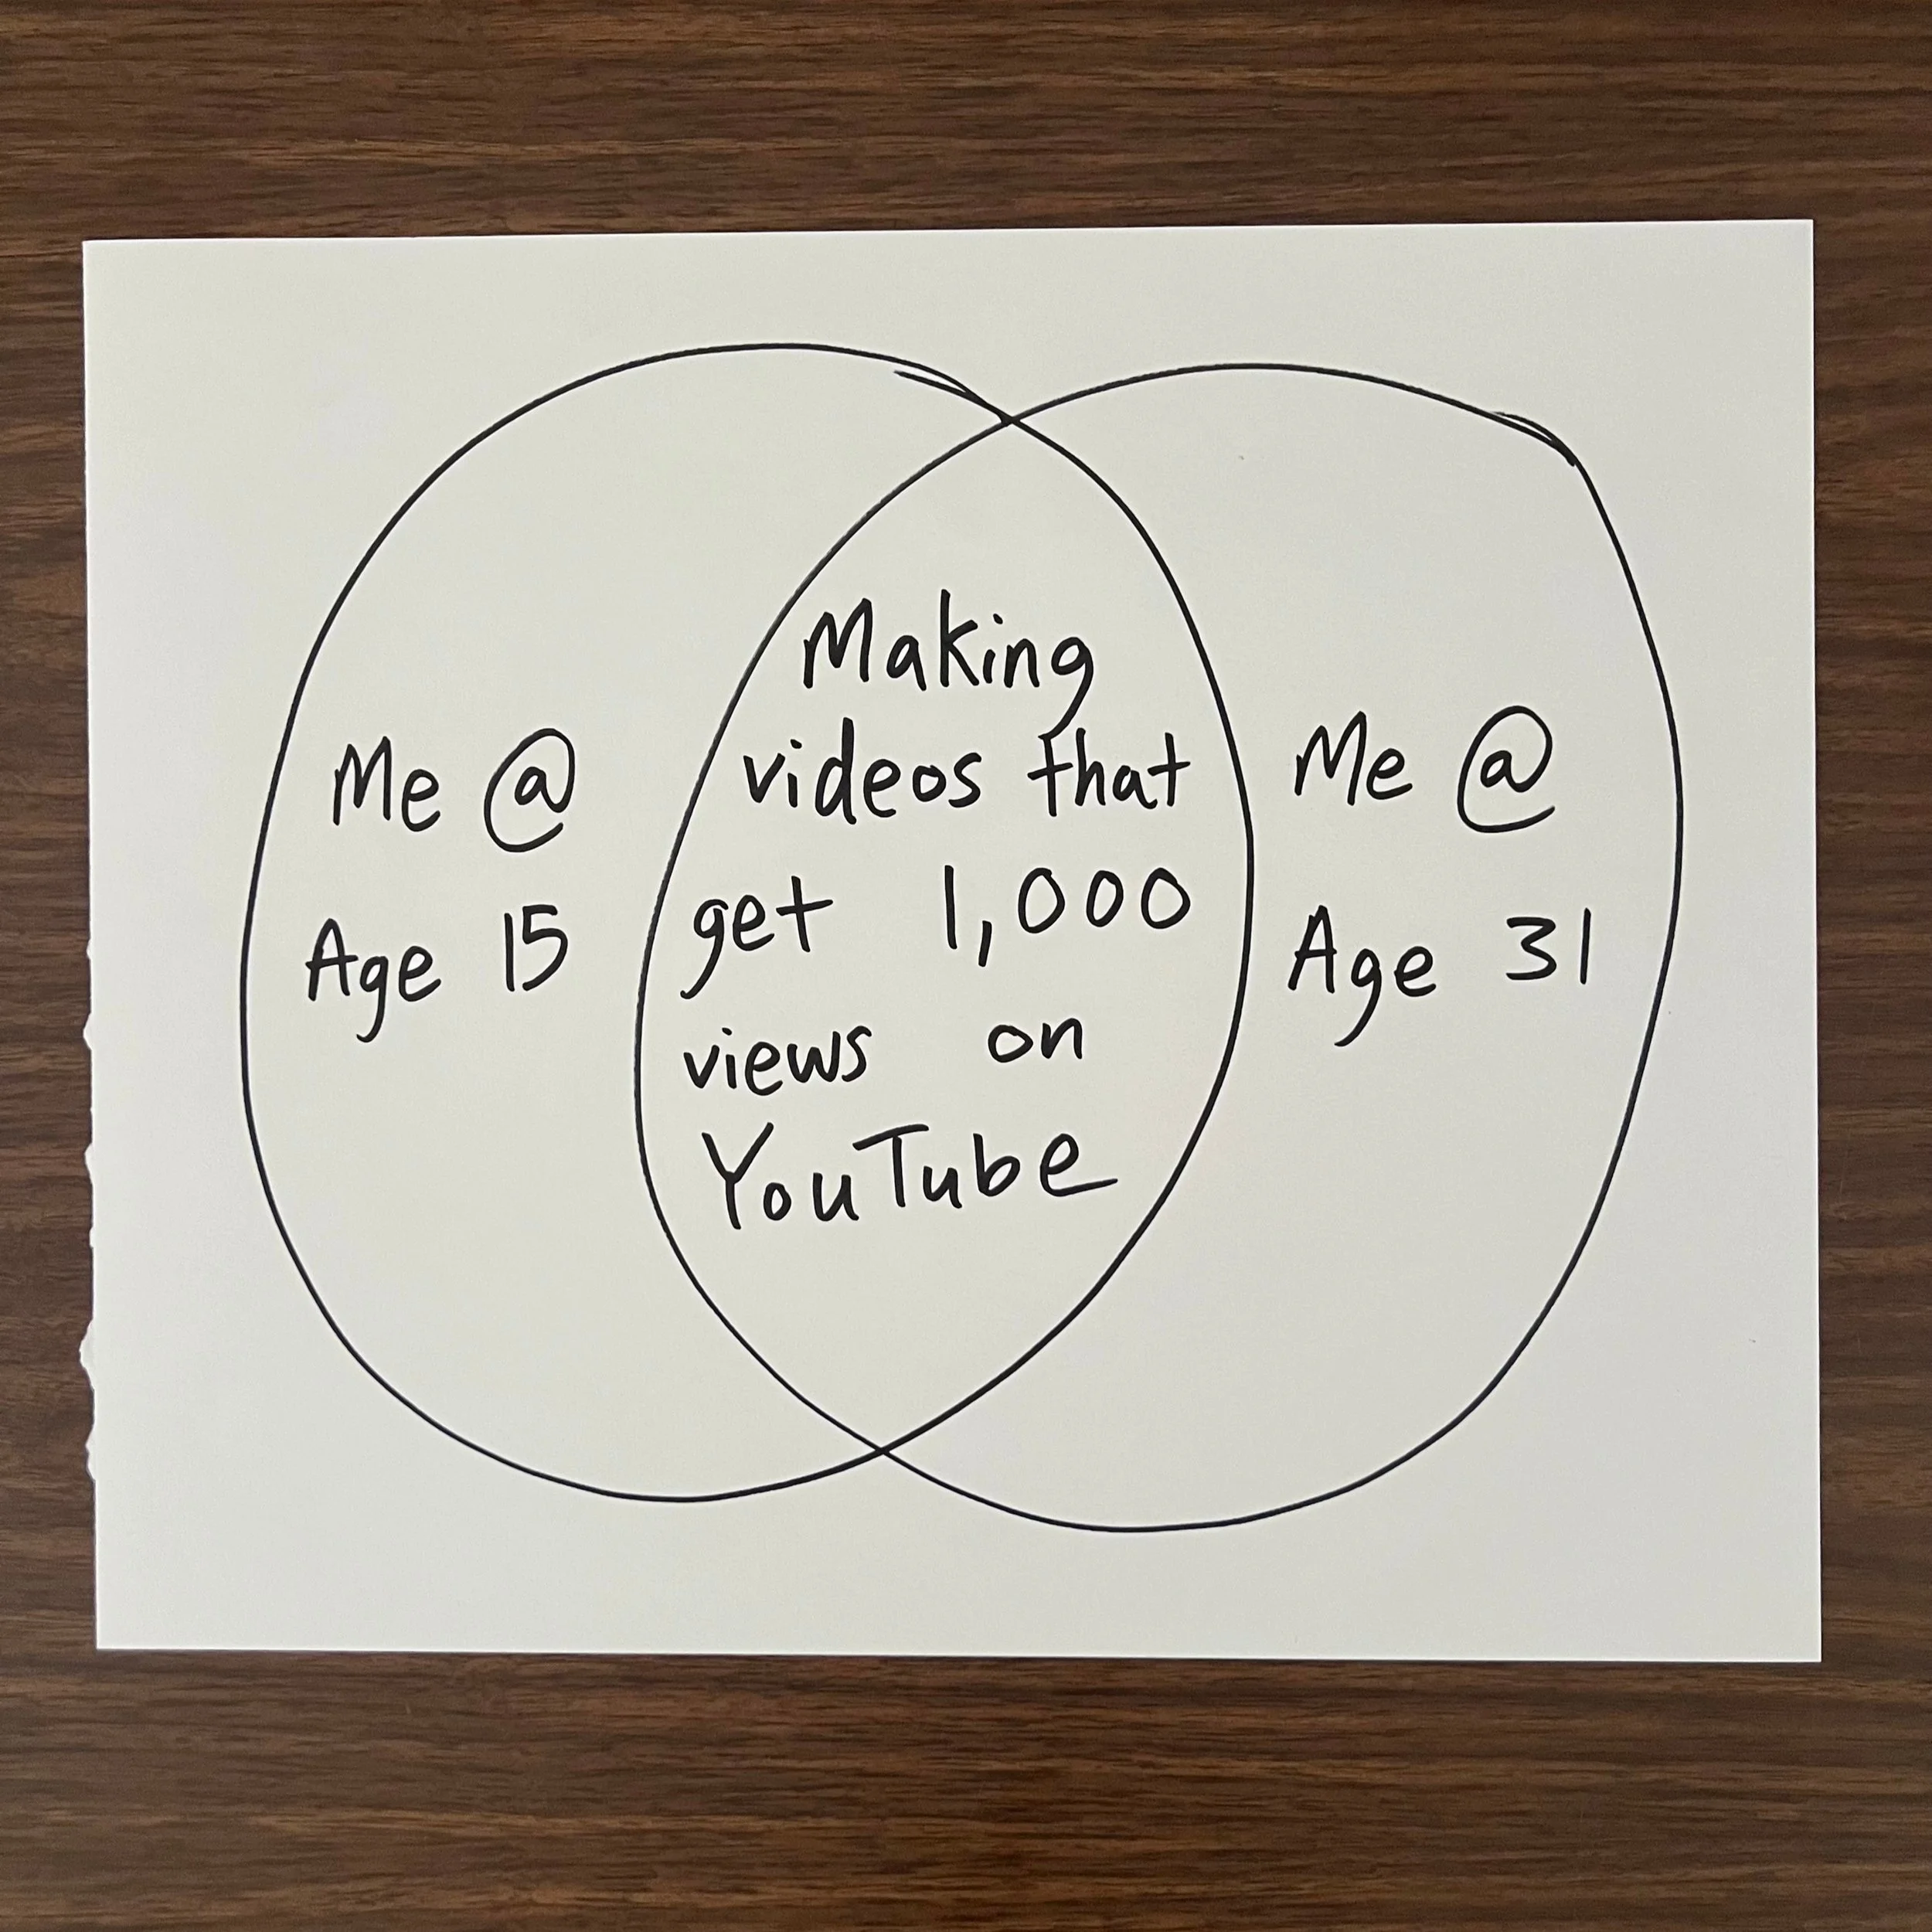 Me @
Age 15
Making
videos that
get 1,000
views on
YouTube
Me @
Age 31